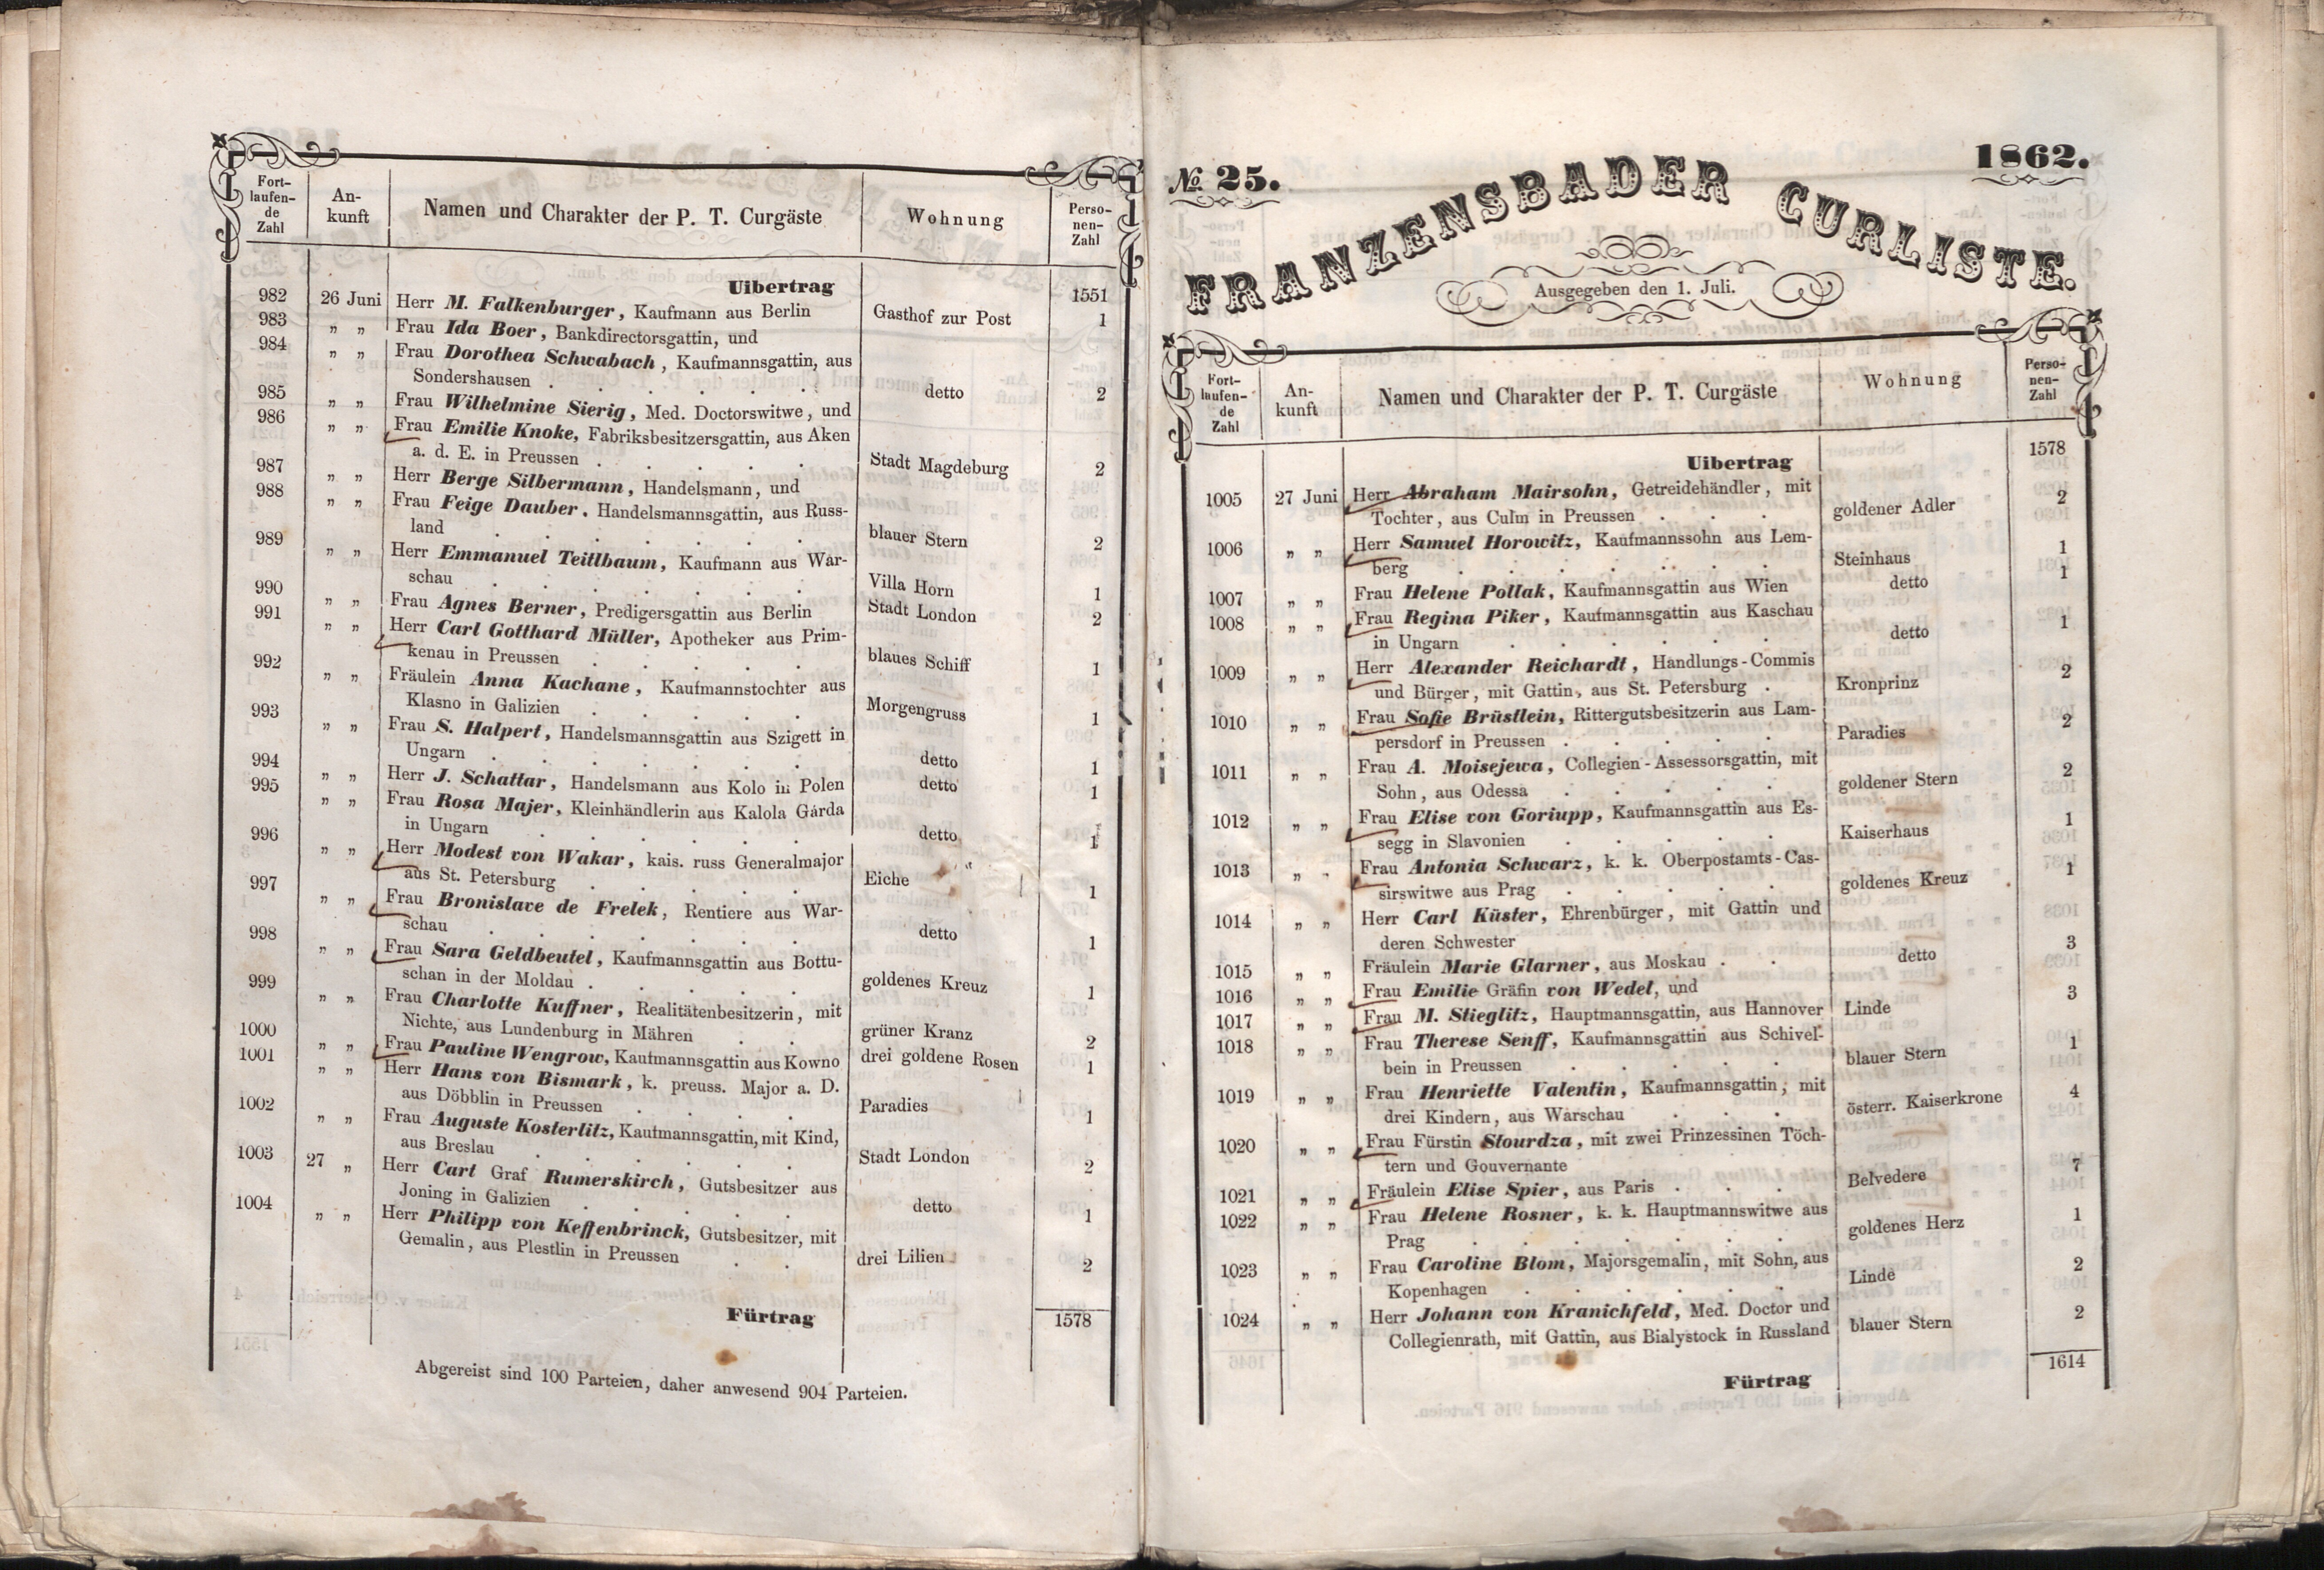 Fort-
laufen-
de
Zahl
An-
kunft
Namen und Charakter der P. T. Curgäste
Wohnung
Perso-
nen-
Zahl
Uibertrag 1551
982 26 Juni Herr M. Falkenburger, Kaufmann aus Berlin Gasthof zur Post 1
983 „ „ Frau Ida Boer, Bankdirectorsgattin, und
984 „ „ Frau Dorothea Schwabach, Kaufmannsgattin, aus
Sondershausen . . . . . . detto 2
985 „ „ Frau Wilhelmine Sierig, Med. Doctorswitwe, und
986 „ „ Frau Emilie Knoke, Fabriksbesitzersgattin, aus Aken
a. d. E. in Preussen . . . . . Stadt Magdeburg 2
987 „ „ Herr Berge Silbermann, Handelsmann, und
988 „ „ Frau Feige Dauber. Handelsmannsgattin, aus Russ-
land . . . . . . blauer Stern 2
989 „ „ Herr Emmanuel Teitlbaum, Kaufmann aus War-
schau . . . . . . . Villa Horn 1
990 „ „ Frau Agnes Berner, Predigersgattin aus Berlin Stadt London 2
991 „ „ Herr Carl Gotthard Müller, Apotheker aus Prim-
kenau in Preussen . . . . . blaues Schiff 1
992 „ „ Fräulein Anna Kachane, Kaufmannstochter aus
Klasno in Galizien . . . . . Morgengruss 1
993 „ „ Frau S. Halpert, Handelsmannsgattin aus Szigett in
Ungarn . . . . . . . detto 1
994 „ „ Herr J. Schattar, Handelsmann aus Kolo in Polen detto 1
995 „ „ Frau Rosa Majer, Kleinhändlerin aus Kalola Gárda
in Ungarn . . . . . . detto 1
996 „ „ Herr Modest von Wakar, kais. russ Generalmajor
aus St. Petersburg . . . . . Eiche 1
997 „ „ Frau Bronislave de Frelek, Rentiere aus War-
schau . . . . . . . detto 1
998 „ „ Frau Sara Geldbeutel, Kaufmannsgattin aus Bottu-
schan in der Moldau . . . . . goldenes Kreuz 1
999 „ „ Frau Charlotte Kuffner, Realitätenbesitzerin, mit
Nichte, aus Lundenburg in Mähren . . grüner Kranz 2
1000 „ „ Frau Pauline Wengrow, Kaufmannsgattin aus Kowno drei goldene Rosen 1
1001 „ „ Herr Hans von Bismark, k. preuss. Major a. D.
aus Döbblin in Preussen . . . . Paradies 1
1002 „ „ Frau Auguste Kosterlitz, Kaufmannsgattin, mit Kind,
aus Breslau . . . . . . Stadt London 2
1003 27 „ Herr Carl Graf Rumerskirch, Gutsbesitzer aus
Joning in Galizien . . . . . detto 1
1004 „ „ Herr Philipp von Keffenbrinck, Gutsbesitzer, mit
Gemalin, aus Plestlin in Preussen . . drei Lilien 2
Fürtrag 1578
Abgereist sind 100 Parteien, daher anwesend 904 Parteien.
No 25. 1862.
FRANZENSBADER CURLISTE.
Ausgegeben den 1. Juli.
Fort-
laufen-
de
Zahl
An-
kunft
Namen und Charakter der P. T. Curgäste
Wohnung
Perso-
nen-
Zahl
Uibertrag 1578
1005 27 Juni Herr Abraham Mairsohn, Getreidehändler, mit
Tochter, aus Culm in Preussen . . . goldener Adler 2
1006 „ „ Herr Samuel Horowitz, Kaufmannssohn aus Lem-
berg . . . . . . . Steinhaus 1
1007 „ „ Frau Helene Pollak, Kaufmannsgattin aus Wien detto 1
1008 „ „ Frau Regina Piker, Kaufmannsgattin aus Kaschau
in Ungarn . . . . . . detto 1
1009 „ „ Herr Alexander Reichardt, Handlungs-Commis
und Bürger, mit Gattin, aus St. Petersburg . Kronprinz 2
1010 „ „ Frau Sofie Brüstlein, Rittergutsbesitzerin aus Lam-
persdorf in Preussen . . . . . Paradies 2
1011 „ „ Frau A. Moisejewa, Collegien-Assessorsgattin, mit
Sohn, aus Odessa . . . . . goldener Stern 2
1012 „ „ Frau Elise von Goriupp, Kaufmannsgattin aus Es-
segg in Slavonien . . . . . Kaiserhaus 1
1013 „ „ Frau Antonia Schwarz, k. k. Oberpostamts-Cas-
sirswitwe aus Prag . . . . . goldenes Kreuz 1
1014 „ „ Herr Carl Küster, Ehrenbürger, mit Gattin und
deren Schwester 3
1015 „ „ Fräulein Marie Glarner, aus Moskau . . detto
1016 „ „ Frau Emilie Gräfin von Wedel, und 3
1017 „ „ Frau M. Stieglitz, Hauptmannsgattin, aus Hannover Linde
1018 „ „ Frau Therese Senff, Kaufmannsgattin aus Schivel-
bein in Preussen . . . . . blauer Stern 1
1019 „ „ Frau Henriette Valentin, Kaufmannsgattin, mit
drei Kindern, aus Warschau . . . österr. Kaiserkrone 4
1020 „ „ Frau Fürstin Stourdza, mit zwei Prinzessinen Töch-
tern und Gouvernante Belvedere 7
1021 „ „ Fräulein Elise Spier, aus Paris . . .
1022 „ „ Frau Helene Rosner, k. k. Hauptmannswitwe aus
Prag . . . . . . . goldenes Herz 1
1023 „ „ Frau Caroline Blom, Majorsgemalin, mit Sohn, aus
Kopenhagen . . . . . . Linde 2
1024 „ „ Herr Johann von Kranichfeld, Med. Doctor und
Collegienrath, mit Gattin, aus Bialystock in Russland blauer Stern 2
Fürtrag 1614